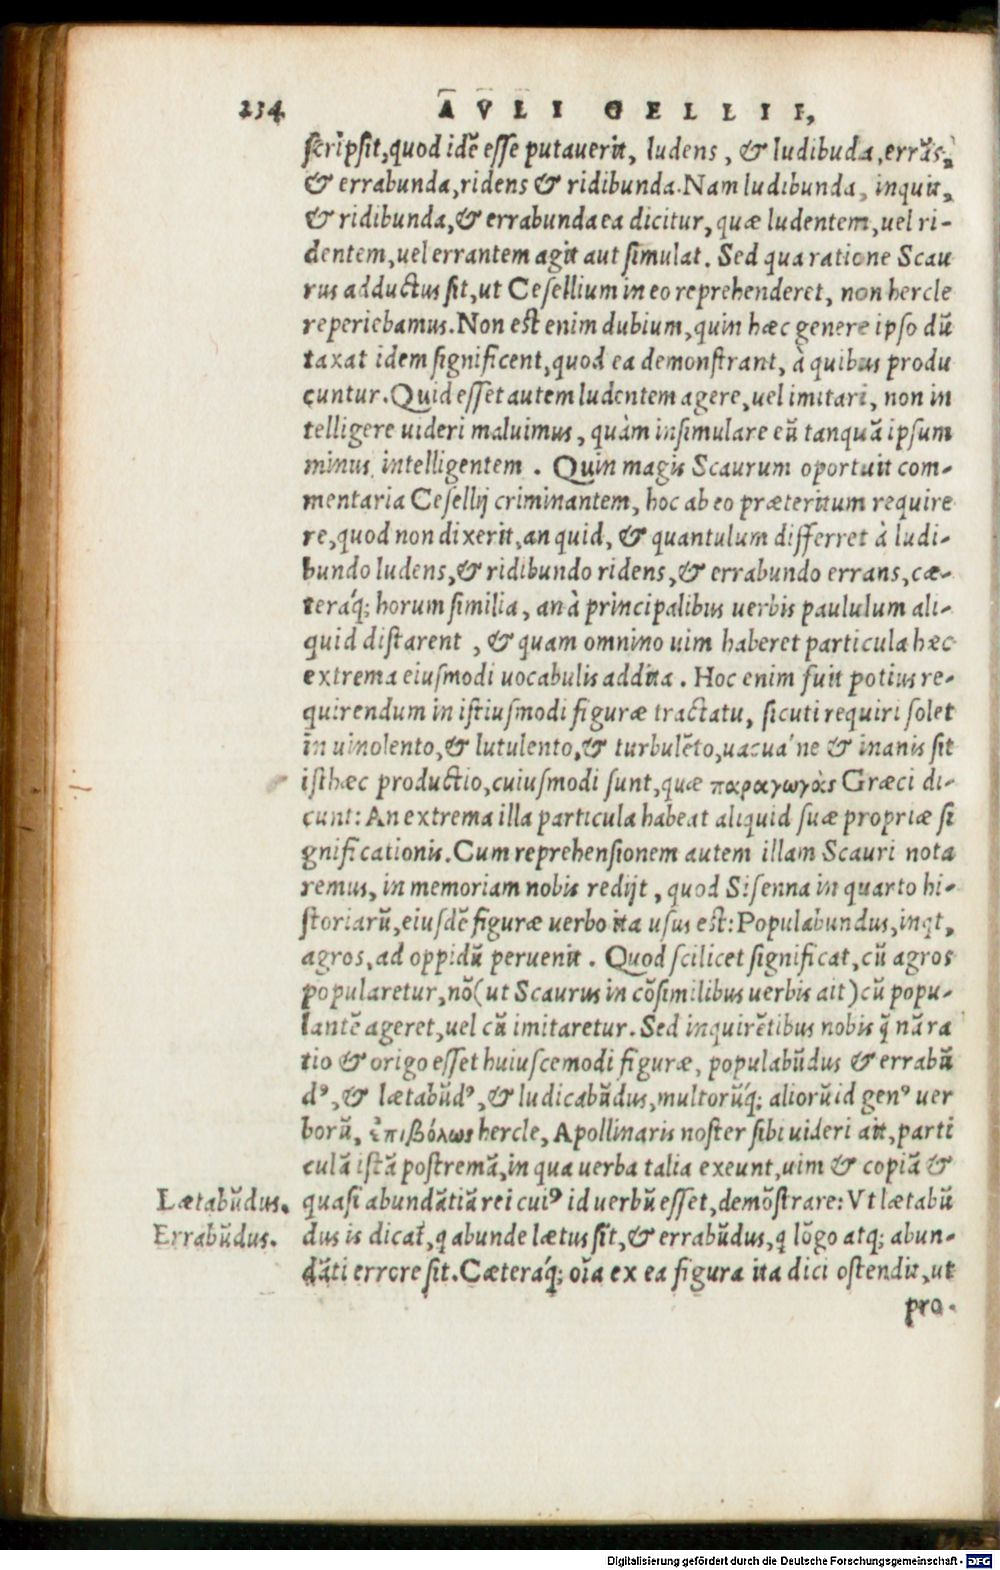 234 AVLI GELLII,
scripsit, quod idē esse putauerit, ludens, & ludibuda, errās,
& errabunda, ridens & ridibunda. Nam ludibunda, inquit,
& ridibunda, & errabunda ea dicitur, quæ ludentem, uel ri-
dentem, uel errantem agit aut simulat. Sed qua ratione Scau
rus adductus sit, ut Cesellium in eo reprehenderet, non hercle
reperiebamus. Non est enim dubium, quin hæc genere ipso dū
taxat idem significent, quod ea demonstrant, à quibus produ
cuntur. Quid esset autem ludentem agere, uel imitari, non in
telligere uideri maluimus, quàm insimulare eū tanquā ipsum
minus intelligentem. Quin magis Scaurum oportuit com-
mentaria Cesellij criminantem, hoc ab eo præteritum require
re, quod non dixerit, an quid, & quantulum differret à ludi-
bundo ludens, & ridibundo ridens, & errabundo errans, cæ-
teráq; horum similia, an à principalibus uerbis paululum ali-
quid distarent, & quam omnino uim haberet particula hæc
extrema eiusmodi uocabulis addita. Hoc enim fuit potius re-
quirendum in istiusmodi figuræ tractatu, sicuti requiri solet
in uinolento, & lutulento, & turbulēto, uacua'ne & inanis sit
isthæc productio, cuiusmodi sunt, quæ παραγωγὰς Græci di-
cunt: An extrema illa particula habeat aliquid suæ propriæ si
gnificationis. Cum reprehensionem autem illam Scauri nota
remus, in memoriam nobis redijt, quod Sisenna in quarto hi-
storiarū, eiusdē figuræ uerbo ita usus est: Populabundus, inqt,
agros, ad oppidū peruenit. Quod scilicet significat, cū agros
popularetur, nō (ut Scaurus in cōsimilibus uerbis ait) cū popu-
lantē ageret, uel cū imitaretur. Sed inquirētibus nobis q̄ nā ra
tio & origo esset huiuscemodi figuræ, populabūdus & errabū
dꝰ, & lætabūdꝰ, & ludicabūdus, multorūq́; aliorū id genꝰ uer
borū, ἐπιβόλως hercle, Apollinaris noster sibi uideri ait, parti
culā istā postremā, in qua uerba talia exeunt, uim & copiā &
Lætabūdus. quasi abundātiā rei cuiꝰ id uerbū esset, demōstrare: Vt lætabū
Errabūdus. dus is dicat̄, q abunde lætus sit, & errabūdus, q lōgo atq; abun-
dāti errore sit. Cæteráq; oīa ex ea figura ita dici ostendit, ut
pro-
Digitalisierung gefördert durch die Deutsche Forschungsgemeinschaft - DFG